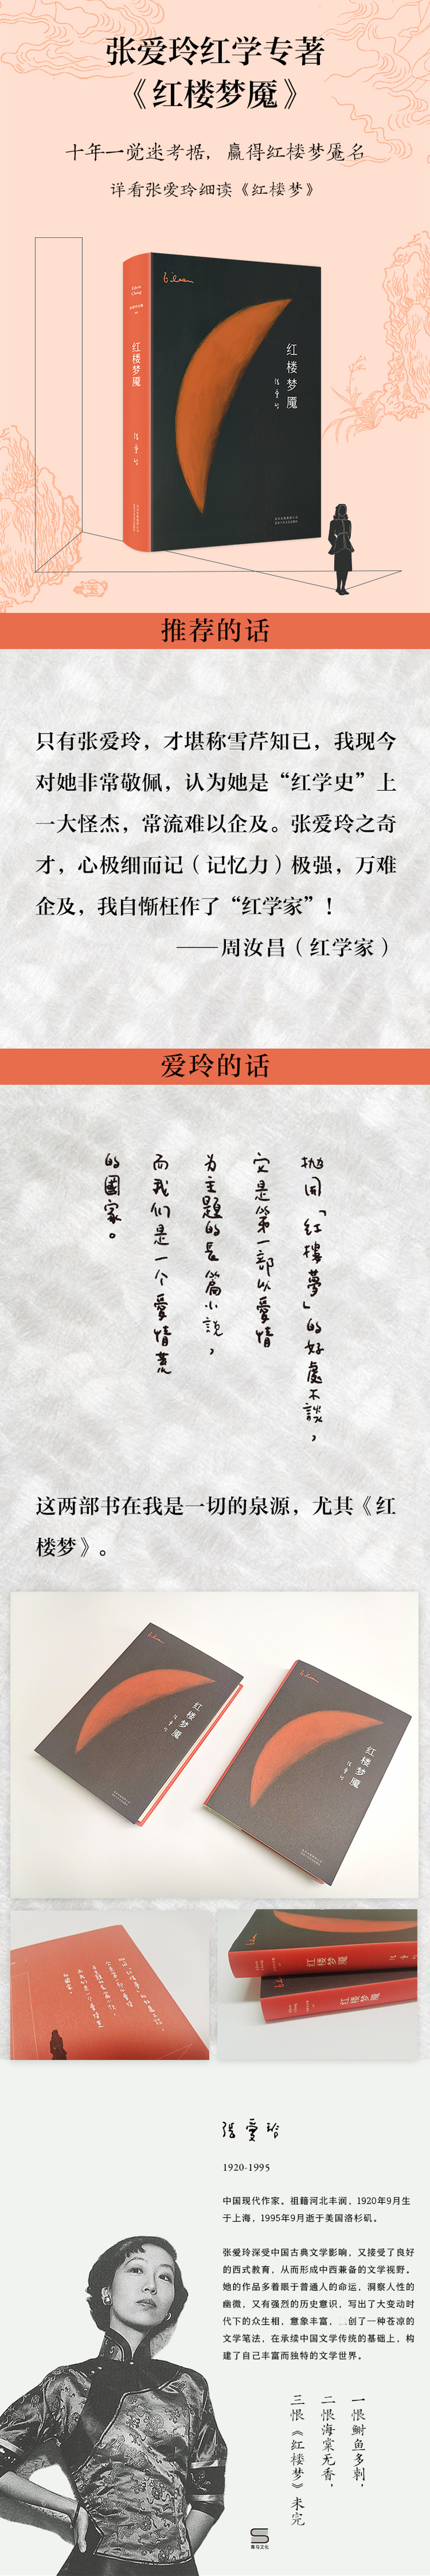 张爱玲红学专著
《红楼梦魇》
十年一觉迷考据，赢得红楼梦魇名
详看张爱玲细读《红楼梦》
Eileen
Chang
红楼梦魇
张爱玲
红楼梦魇
张爱玲
推荐的话
只有张爱玲，才堪称雪芹知己，我现今
对她非常敬佩，认为她是“红学史”上
一大怪杰，常流难以企及。张爱玲之奇
才，心极细而记（记忆力）极强，万难
企及，我自惭枉作了“红学家”！
——周汝昌（红学家）
爱玲的话
抛开「红樓夢」的好處不談，
它是第一部以愛情
为主題的長篇小說，
而我们是一个愛情荒
的國家。
这两部书在我是一切的泉源，尤其《红
楼梦》。
红楼梦魇
张爱玲
红楼梦魇
张爱玲
红楼梦魇
红楼梦魇
张爱玲
1920-1995
中国现代作家。祖籍河北丰润，1920年9月生
于上海，1995年9月逝于美国洛杉矶。
张爱玲深受中国古典文学影响，又接受了良好
的西式教育，从而形成中西兼备的文学视野。
她的作品多着眼于普通人的命运，洞察人性的
幽微，又有强烈的历史意识，写出了大变动时
代下的众生相，意象丰富，创了一种苍凉的
文学笔法，在承续中国文学传统的基础上，构
建了自己丰富而独特的文学世界。
一恨鲥鱼多刺，
二恨海棠无香，
三恨《红楼梦》未完
青马文化